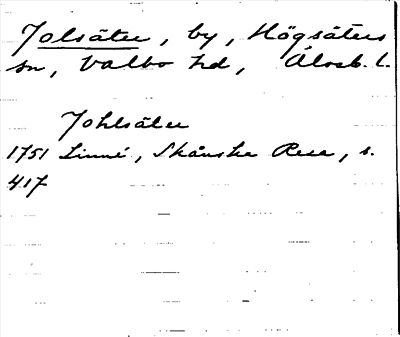 Jolsäter, by, Högsäters
sn, Valbo hd, Älvsb. l.
Johlsäter
1751 Linné, Skånska Resa, s.
417